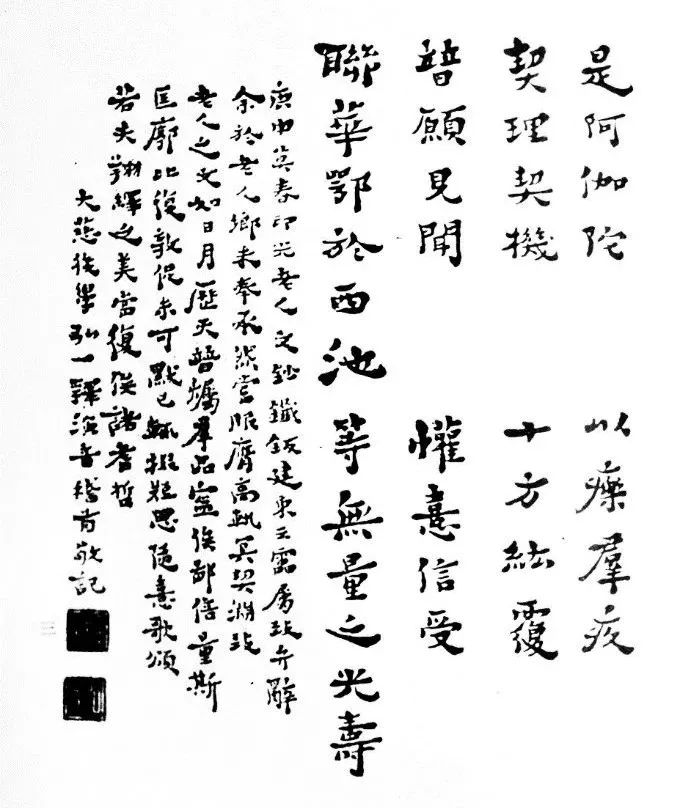 是阿伽陀 以療羣疚
契理契機 十方紘覆
普願見聞 懽憙信受
聯華鄂於西池 等無量之光壽
庚申莫春印光老人文鈔鐫鈑建東云雷屬致弁辭
余於老人鄉未奉承然嘗服膺高軌冥契淵致
老人之文如日月歷天普爥羣品寧俟鄙倍量斯
匡廓比復敦促未可默已輒摭粗思隨憙歌頌
若夫翔繹之美當復俟諸耆哲
大慈後學弘一釋演音稽首敬記